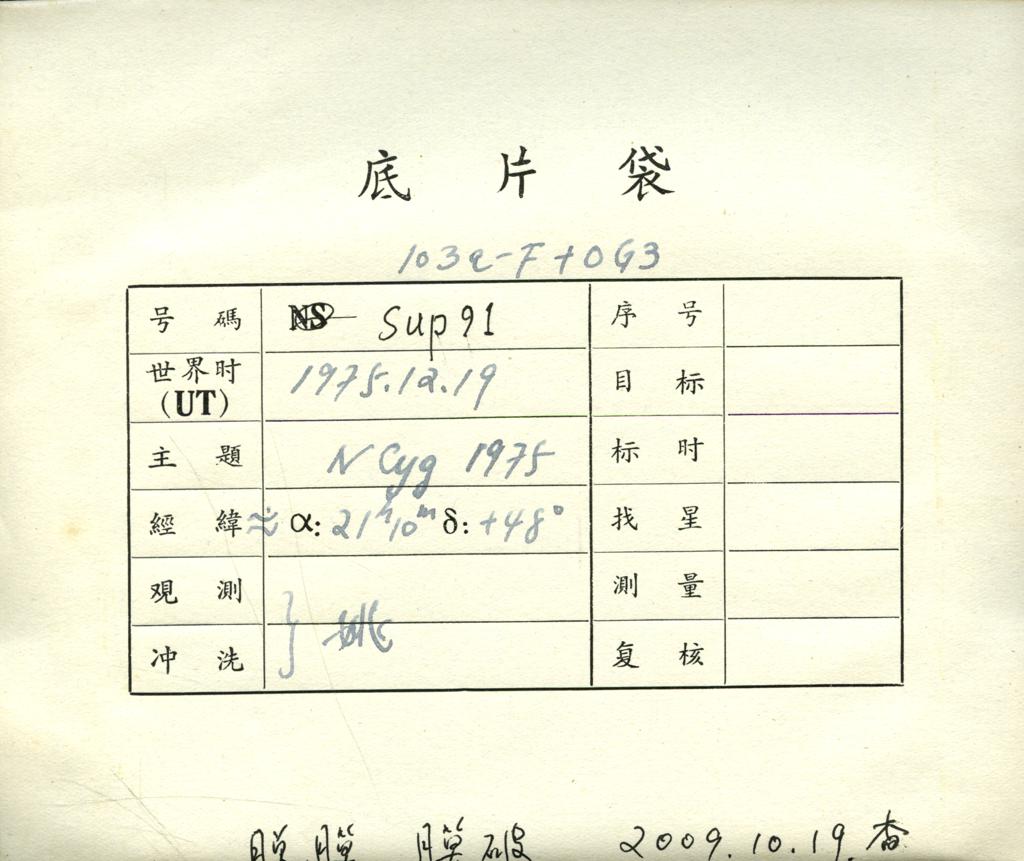 底 片 袋
103a-F+OG3
号 碼 NS Sup91 序 号
世界时 (UT) 1975.12.19 目 标
主 題 N Cyg 1975 标 时
經 緯 ≈ α: 21h10m δ: +48° 找 星
观 測 } 姚 測 量
冲 洗 复 核
破 2009.10.19. 查